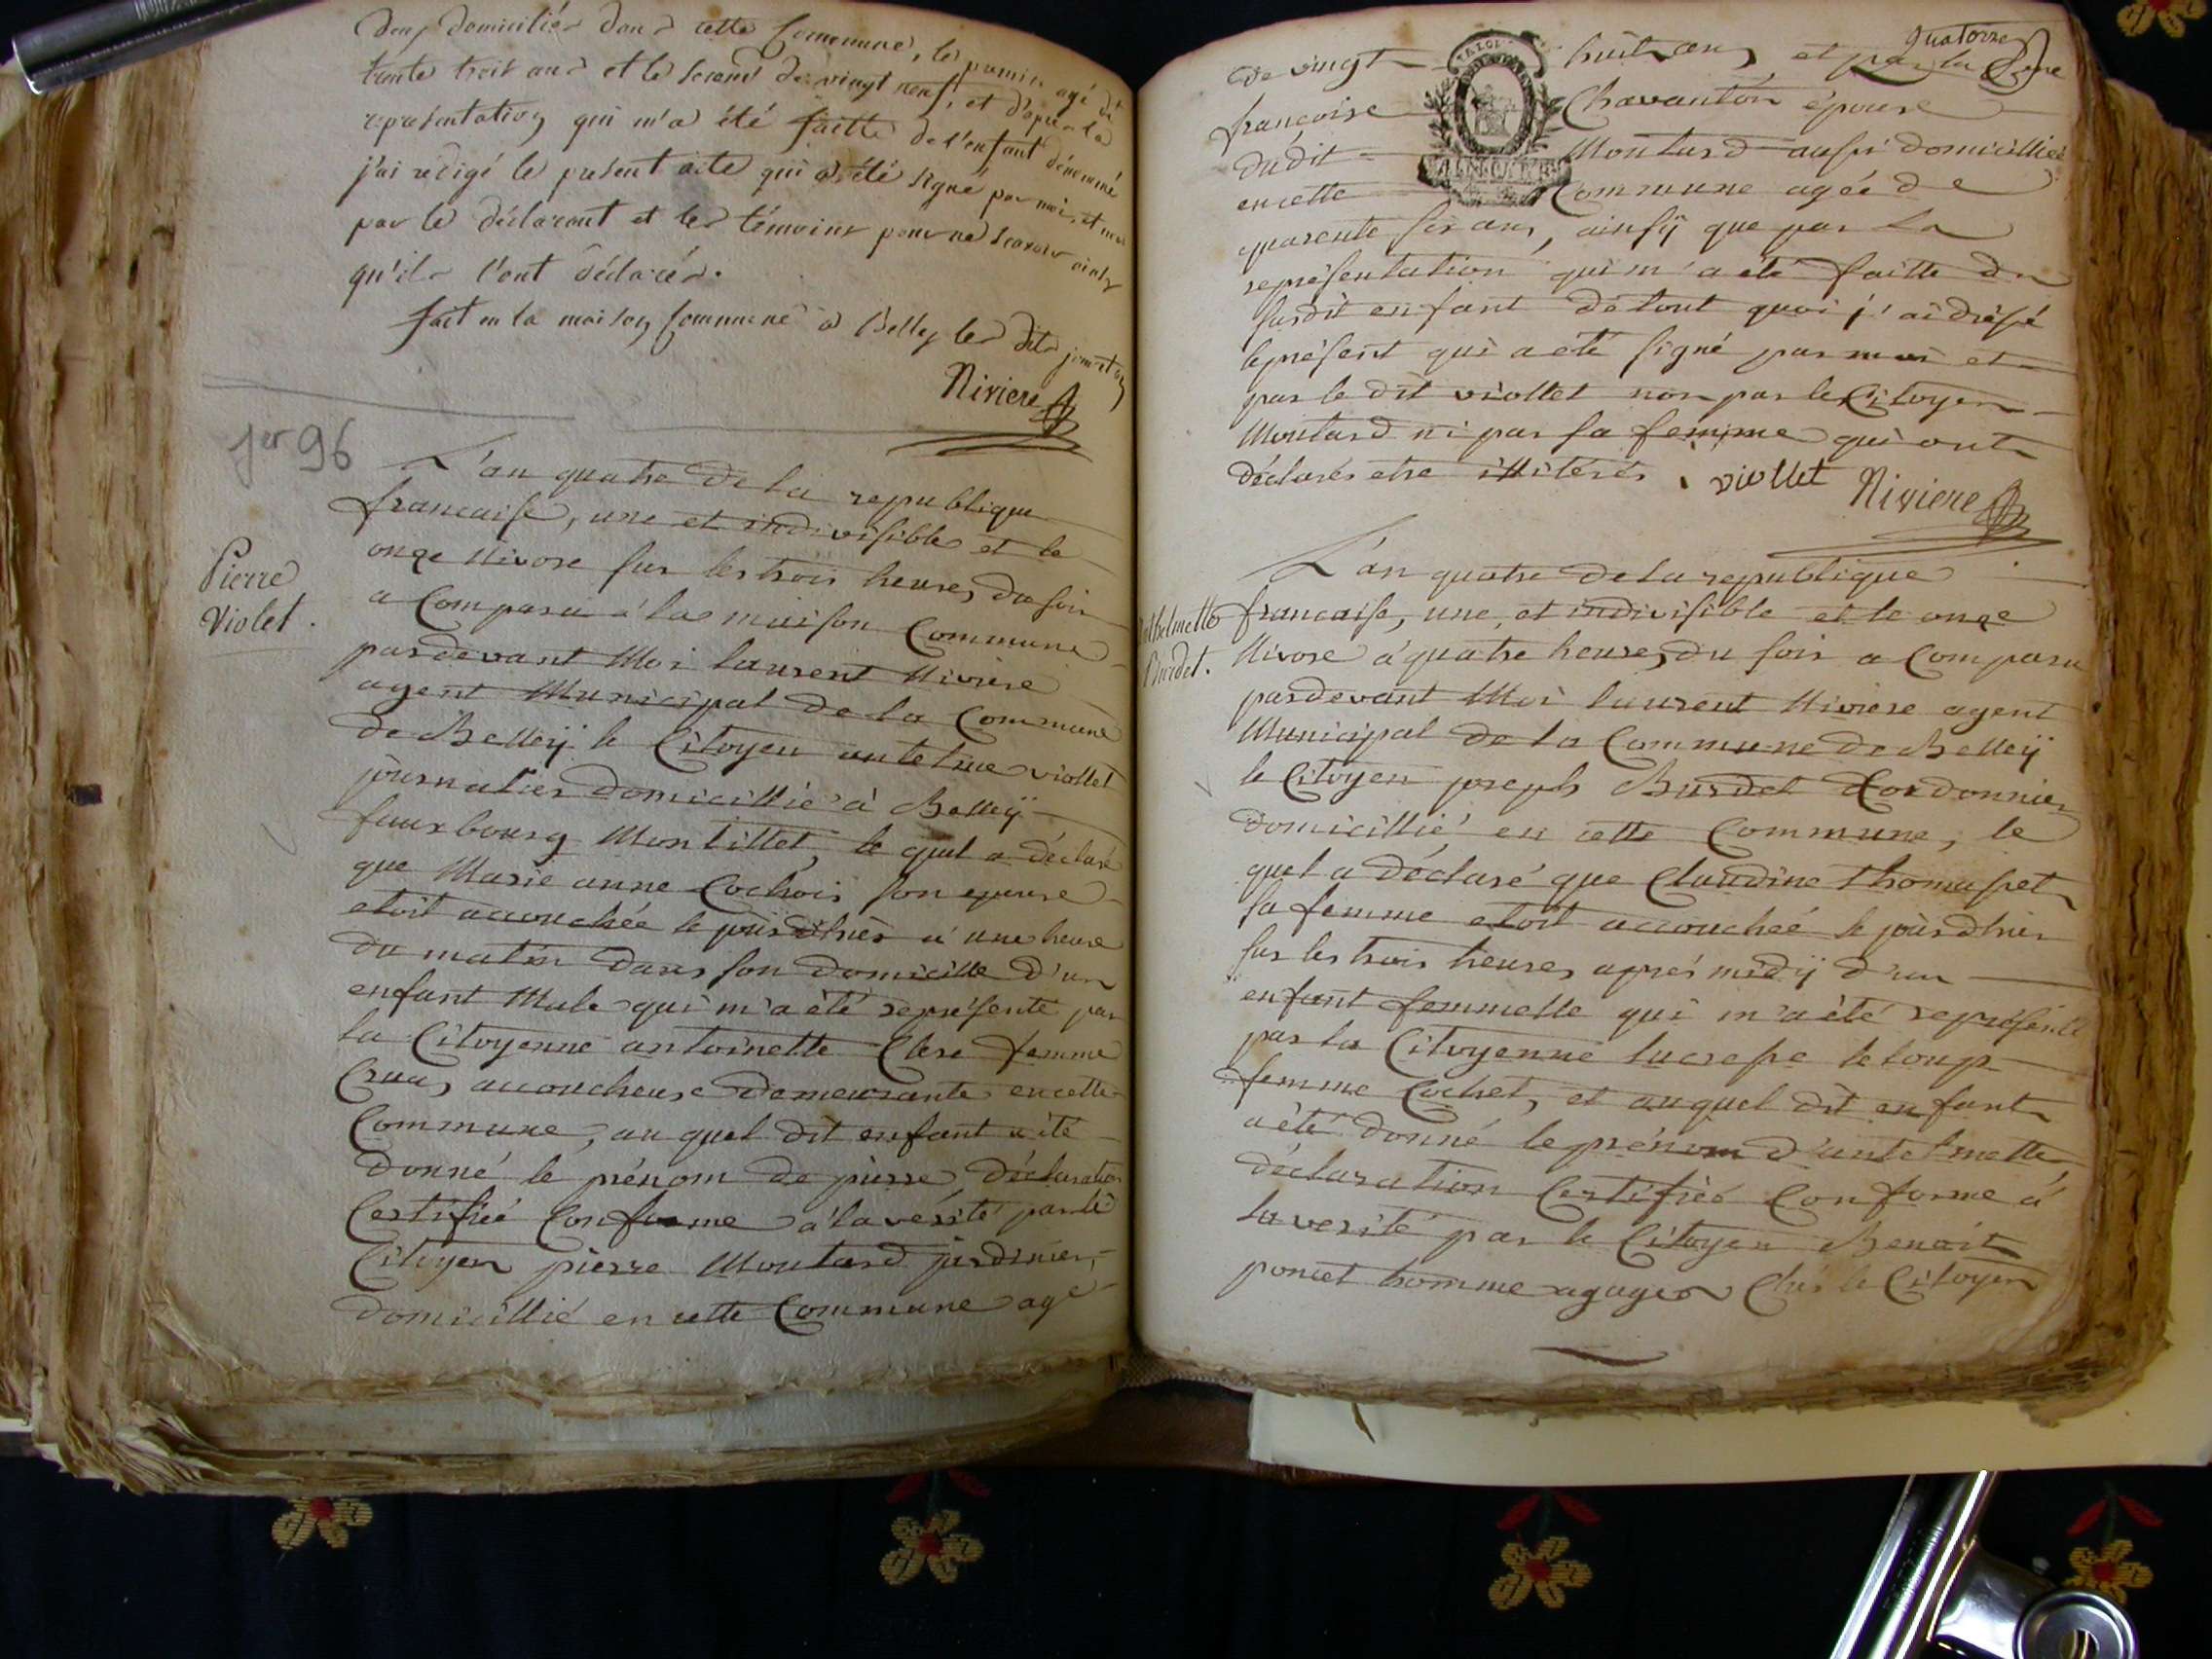 deux domiciliés dans cette Commune, le premier agé de
trente trois ans et le second de vingt neuf, et d'après la
representation qui m'a été faitte de l'enfant dénommé
j'ai rédigé le present acte qui a été signé par moi, et non
par le déclarant et les témoins pour ne scavoir ainsy
qu'ils l'ont déclarés.
fait en la maison commune à Belley les dits jour et an
Niviere
jer 96
Pierre
Violet.
L'an quatre de la republique
francaise, une et indivisible et le
onze Nivose sur les trois heures du soir
a Comparu à la maison Commune
pardevant Moi laurent Niviere
agent Municipal de la Commune
de Belleÿ le Citoyen antelme viollet
journalier domicillié à Belleÿ
fauxbourg Montillet, le quel a déclaré
que Marie anne Cochois son epouse
etoit accouchée le jour d'hier à une heure
du matin dans son domicille d'un
enfant Male qui m'a été représenté par
la Citoyenne antoinette Clere femme
Cruas accoucheuse demeurante en cette
Commune, au quel dit enfant a été
donné le prénom de pierre déclaration
Certifiée Conforme à la verité par le
Citoyen pierre Moutard jardinier,
domicillié en cette Commune agé
quatorze
de vingt huit ans et par la Cne
francoise Chavanton épouse
dudit Moutard aussi domicilliée
en cette Commune agée de
quarente six ans, ainsÿ que par la
représentation qui m'a été faitte du
susdit enfant de tout quoi j'ai dréssé
le présent qui a été signé par moi et
par le dit viollet non par le Citoyen
Moutard ni par sa femme qui ont
déclarés etre illitérés. viollet Niviere
Anthelmette
Burdet.
L'an quatre de la republique
francaise, une, et indivisible et le onze
Nivose à quatre heures du soir a Comparu
pardevant Moi laurent Niviere agent
Municipal de la Commune de Belleÿ
le Citoyen joseph Burdet Cordonnier
domicillié en cette Commune, le
quel a déclaré que Claudine thomasset
sa femme etoit accouchée le jour d'hier
sur les trois heures aprés midÿ d'un
enfant femmelle qui m'a été représenté
par la Citoyenne lucresse leloup
femme Cochet, et auquel dit enfant
a été donné le prénom d'antelmette
déclaration Certifiée Conforme à
la verité par le Citoyen Benoit
poncet homme agages Chés le Citoyen